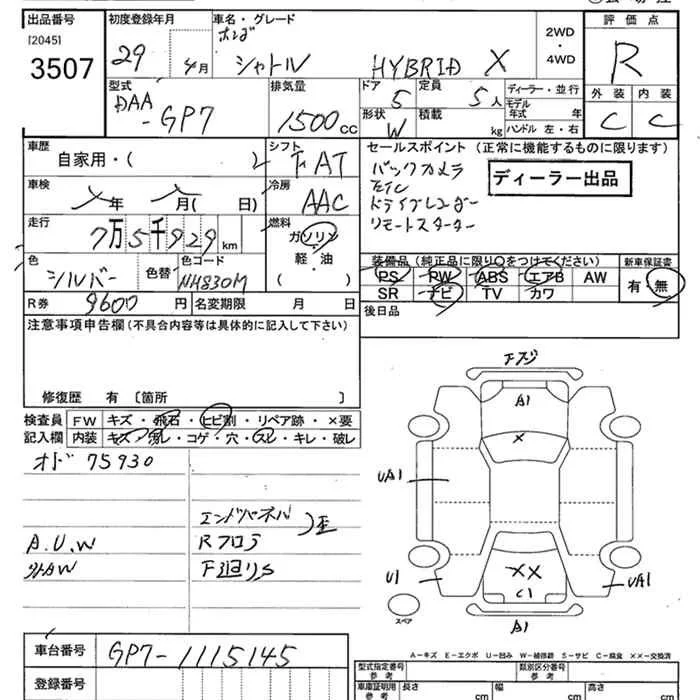 出品番号 初度登録年月 車名・グレード 評価点
[2045] ホンダ 2WD
3507 29年 4月 シャトル HYBRID X ・ R
4WD
型式 排気量 ドア 定員 ディーラー・並行 外装 内装
DAA 5 5人 モデル年式 年
-GP7 1500cc 形状 積載 ハンドル 左・右 C C
W kg
車歴 シフト セールスポイント (正常に機能するものに限ります)
自家用・( ) FAT バックカメラ
車検 冷房 ETC ディーラー出品
年 月( 日) AAC ドライブレコーダー
走行 燃料 リモートスターター
7万5千929km ガソリン
色 色替 色コード 軽・油 装備品(純正品に限り○をつけてください) 新車保証書
シルバー NH830M ( ) PS PW ABS エアB AW 有・無
R券 9600円 名変期限 月 日 SR ナビ TV カワ
注意事項申告欄(不具合内容等は具体的に記入して下さい) 後日品
修復歴 有 〔箇所 〕
検査員 FW キズ・飛石・ヒビ割・リペア跡・×要
記入欄 内装 キズ・汚レ・コゲ・穴・スレ・キレ・破レ
オド 75930
エンドパネル
A.U.W Rフロア
外AW
A1
×
UA1
××
U1 C1 UA1
スペア
A1
A-キズ E-エクボ U-凹み W-補修跡 S-サビ C-腐食 ××-交換済
車台番号 GP7-1115145 型式指定番号 参考 類別区分番号 参考
登録番号 車庫証明用 参考 長さ cm 幅 cm 高さ cm